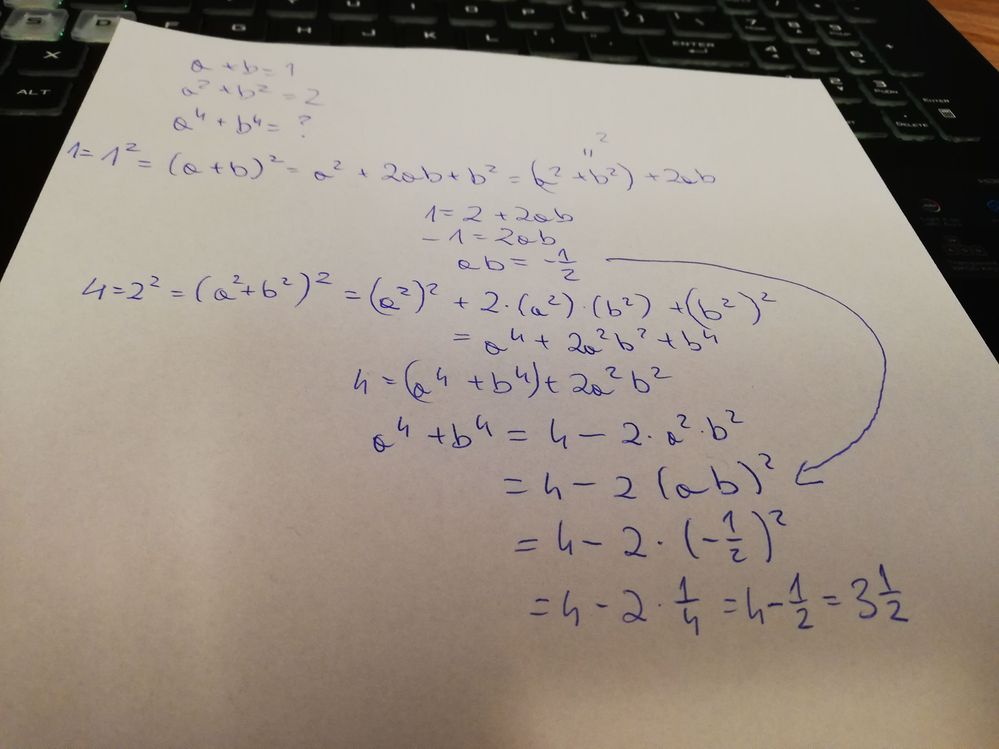 a + b = 1
a² + b² = 2
a⁴ + b⁴ = ?
2
"
1 = 1² = (a + b)² = a² + 2ab + b² = (a² + b²) + 2ab
1 = 2 + 2ab
-1 = 2ab
ab = -1/2
4 = 2² = (a² + b²)² = (a²)² + 2·(a²)·(b²) + (b²)²
= a⁴ + 2a²b² + b⁴
4 = (a⁴ + b⁴) + 2a²b²
a⁴ + b⁴ = 4 - 2·a²·b²
= 4 - 2(ab)²
= 4 - 2·(-1/2)²
= 4 - 2·1/4 = 4 - 1/2 = 3 1/2
S D
X
ALT
G H J K L
ENTER
ENTER
DELETE